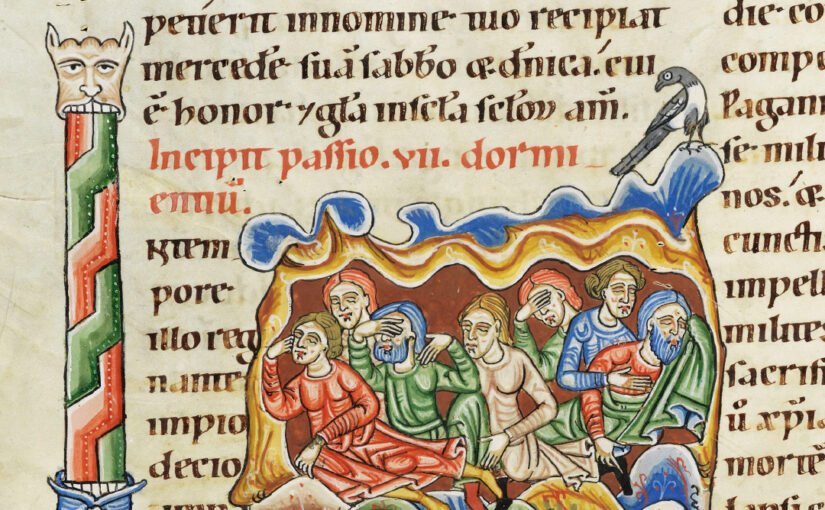 petierit innomine tuo recipiat
mercedē suā sabbo & dn̄ica. cui
ē honor ⁊ gl̄a inscl̄a scl̄oꝝ am̄.
Incipit passio. vii. dormi
entiū.
Ntem
pore
illo reg
nante
impio
decio
die co
compo
Pagani
se mili
nos. &
cuncti
impell
milites
sacrifi
ū xp̄ia
morte